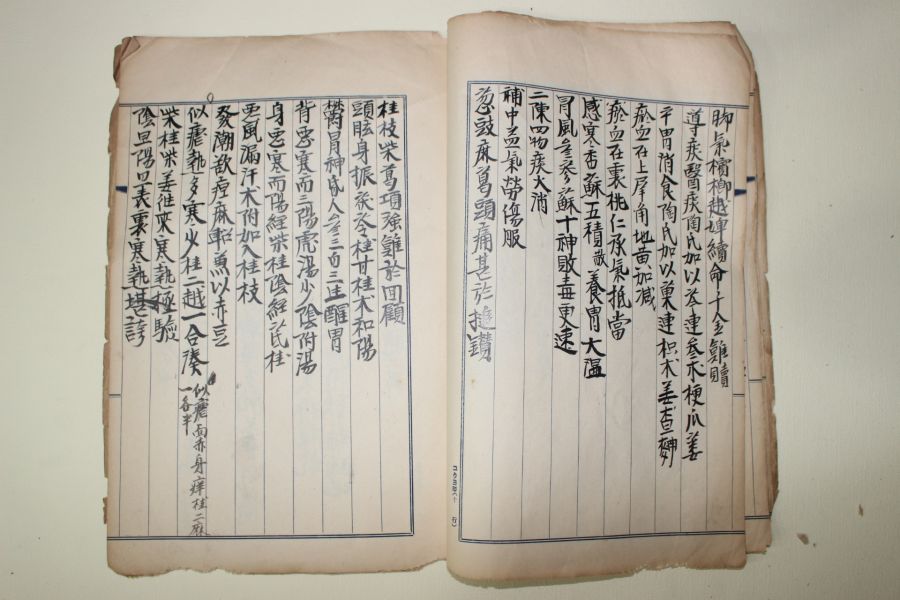 脚氣檳榔越婢續命千金難贖
導痰醫痰陶氏加以苓連參朮梗瓜姜
平胃消食陶氏加以菓連枳朮姜查
瘀血在上犀角地黃加減
瘀血在裏桃仁承氣抵當
感寒杏蘇五積散養胃大溫
冒風參蘇十神敗毒更速
二陳四物痰火消
補中益氣勞傷服
葱豉麻葛頭痛甚於
コクヨ
行
桂枝柴葛項強難於回顧
頭眩身振苓桂甘桂朮和陽
鬱冒神昏人參三白三生醒胃
背惡寒而三陽虎湯少陰附湯
身惡寒而陽經柴桂陰經
惡風漏汗朮附加入桂枝
發潮欲痘麻軺魚以赤豆
似瘧熱多寒少桂二越一合湊
似瘧面赤身痒桂二麻
一各半
柴桂柴姜往來寒熱極驗
陰旦陽旦表裏寒熱堪誇